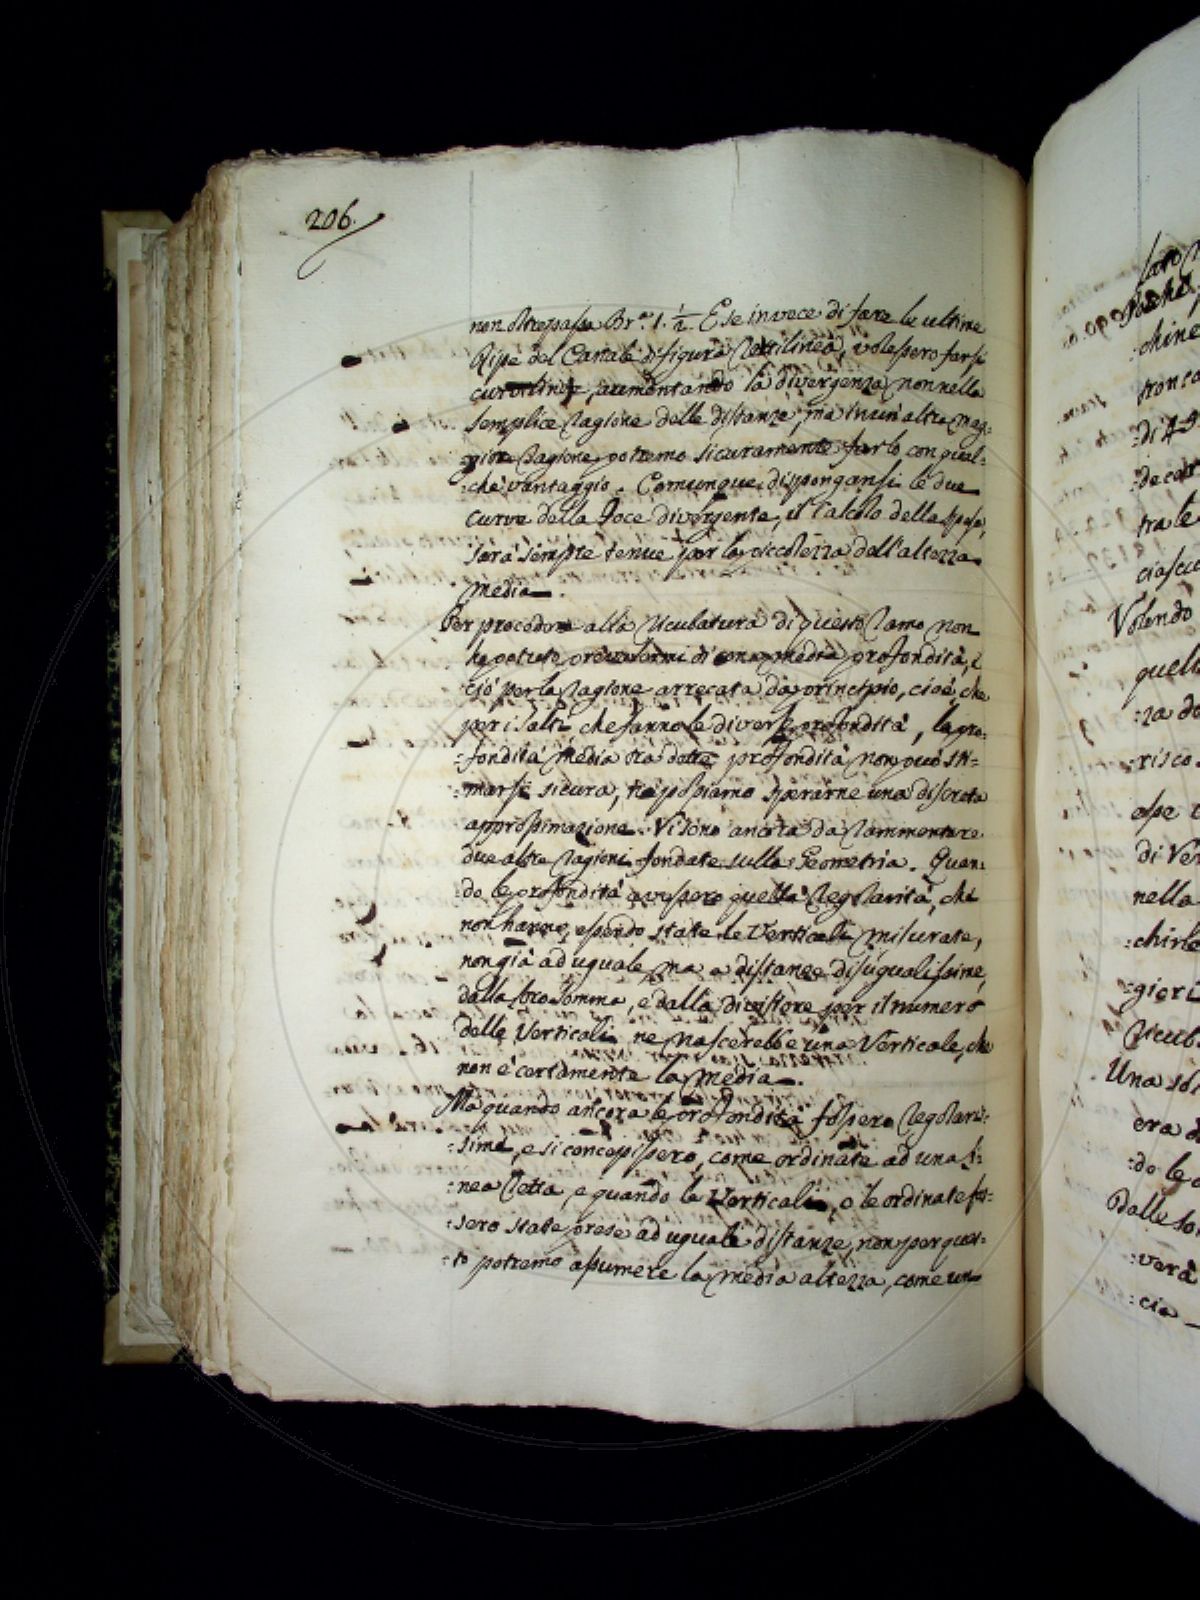 206.
non oltrepassa Br.ª 1. 1/2. E se invece di fare le ultime
Ripe del Canale di figura Rettilinea, volessero farsi
curvilinee, aumentando la divergenza non nella
semplice Ragione delle distanze, ma in un'altra mag:
:giore Ragione, potremo sicuramente farlo con qual:
:che vantaggio. Comunque dispongansi le due
curve della Foce divergente, il Calcolo della spesa,
sarà sempre tenue per la piccolezza dell'altezza
media.
Per procedere alla Ricubatura di questo Ramo non
ho potuto prevalermi di una media profondità, e
ciò per la Ragione arrecata da principio, cioè, che
per i salti che fanno le diverse profondità, la pro:
:fondità media tra dette profondità non può sti:
:marsi sicura, nè possiamo sperarne una discreta
approssimazione. Vi sono ancora da Rammentare
due altre Ragioni fondate sulla Geometria. Quan:
:do le profondità avessero quella Regolarità, che
non hanno, essendo state le Verticali misurate,
non già ad uguale, ma a distanze disugualissime,
dalla loro somma, e dalla divisione per il numero
delle Verticali ne nascerebbe una Verticale, che
non è certamente la media.
Ma quando ancora le profondità fossero Regolaris:
:sime, e si concepissero, come ordinate ad una li:
:nea Retta, e quando le Verticali, o le ordinate fos:
:sero state prese ad uguali distanze, non per ques:
:to potremo assumere la media altezza, come un
chine
tronca
:di 49
:decott
tra le
ciascu
Volendo
quell
:za de
:risco
di Ver
nella
:chirle
:gior
Una so
era d
:do le
Delle so
:verà
:cia